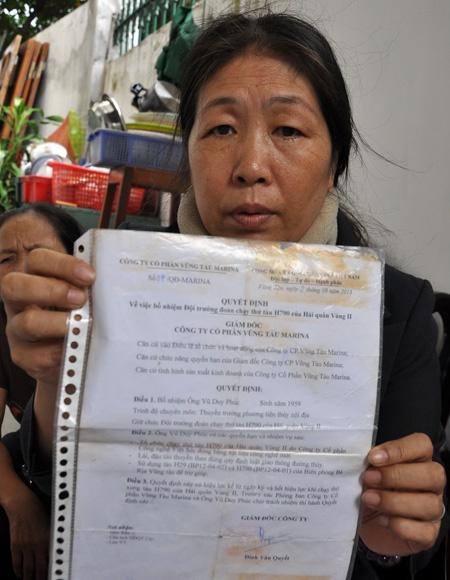 CÔNG TY CỔ PHẦN VŨNG TÀU MARINA
/QĐ-MARINA
Độc lập - Tự do - Hạnh phúc
QUYẾT ĐỊNH
Về việc bổ nhiệm Đội trưởng đoàn chạy thử tàu H790 của Hải quân Vùng II
GIÁM ĐỐC
CÔNG TY CỔ PHẦN VŨNG TÀU MARINA
Căn cứ vào Điều lệ tổ chức và hoạt động của Công ty CP Vũng Tàu Marina;
Căn cứ chức năng quyền hạn của Giám đốc Công ty CP Vũng Tàu Marina;
Căn cứ tình hình sản xuất kinh doanh của Công ty Cổ Phần Vũng Tàu Marina.
QUYẾT ĐỊNH:
Điều 1. Bổ nhiệm Ông Vũ Duy Phúc Sinh năm 1959
Trình độ chuyên môn: Thuyền trưởng phương tiện thủy nội địa
Giữ chức Đội trưởng đoàn chạy thử tàu H790 của Hải quân Vùng II
Điều 2. Ông Vũ Duy Phúc có các quyền hạn và nhiệm vụ sau:
- Tổ chức chạy thử tàu H790 của Hải quân Vùng II do Công ty Cổ phần
- Lái, đưa tàu
- Sử dụng tàu H29 (BP12-04-02) và H790 (BP12-04-01) của Biên phòng Bà
Rịa Vũng tàu để
Điều 3. Quyết định này có hiệu lực kể từ ngày ký và hết hiệu lực khi chạy thử
xong tàu H790 của Hải quân Vùng II, Trưởng các Phòng ban Công ty Cổ
phần Vũng Tàu Marina và Ông Vũ Duy Phúc chịu trách nhiệm thi hành Quyết
định này
Nơi nhận:
GIÁM ĐỐC CÔNG TY
Đinh Văn Quyết